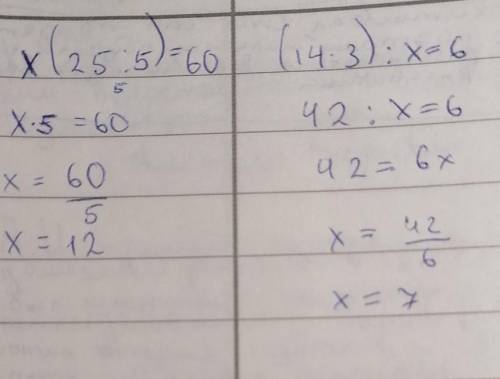 x(25:5)=60
5
x·5=60
x = 60/5
x = 12
(14·3):x=6
42:x=6
42=6x
x = 42/6
x = 7